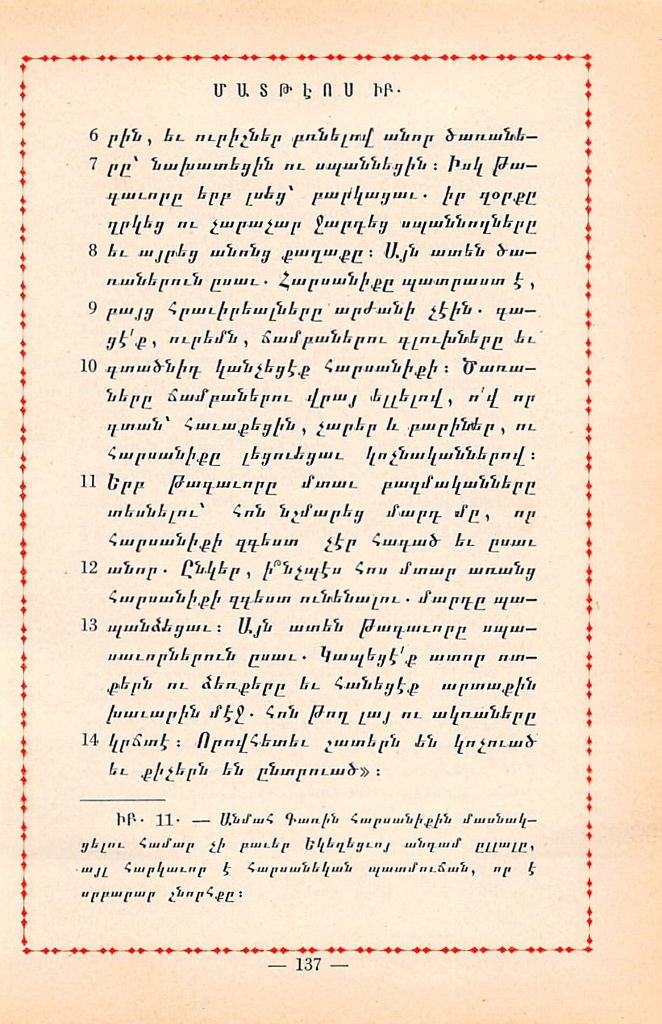 ՄԱՏԹԷՈՍ ԻԲ.
6 րին, եւ ուրիշներ բռնելով անոր ծառանե—
7 րը՝ նախատեցին ու սպաննեցին։ Իսկ Թա—
գաւորը երբ լսեց՝ բարկացաւ. իր զօրքը
ղրկեց ու չարաչար Ջարդեց սպաննողները
8 եւ այրեց անոնց քաղաքը։ Այն ատեն ծա—
ռաներուն ըսաւ. Հարսանիքը պատրաստ է,
9 բայց հրաւիրեալները արժանի չէին. գա—
ցէ՛ք, ուրեմն, ճամբաներու գլուխները եւ
10 գտածնիդ կանչեցէք հարսանիքի։ Ծառա—
ները ճամբաներու վրայ ելլելով, ո՛վ որ
գտան՝ հաւաքեցին, չարեր և բարիներ, ու
հարսանիքը լեցուեցաւ կոչնականներով։
11 Երբ Թագաւորը մտաւ բազմականները
տեսնելու՝ հոն նշմարեց մարդ մը, որ
հարսանիքի զգեստ չէր հագած եւ ըսաւ
12 անոր. Ընկեր, ի՞նչպէս հոս մտար առանց
հարսանիքի զգեստ ունենալու. մարդը պա—
13 պանձեցաւ։ Այն ատեն Թագաւորը սպա—
սաւորներուն ըսաւ. Կապեցէ՛ք ատոր ոտ—
քերն ու ձեռքերը եւ հանեցէք արտաքին
խաւարին մէջ. հոն թող լայ ու ակռաները
14 կրճտէ։ Որովհետեւ շատերն են կոչուած
եւ քիչերն են ընտրուած»։
ԻԲ. 11. — Անմահ Գառին հարսանիքին մասնակ—
ցելու համար չի բաւեր Եկեղեցւոյ անդամ ըլլալը,
այլ հարկաւոր է հարսանեկան պատմուճան, որ է
սրբարար շնորհքը։
— 137 —